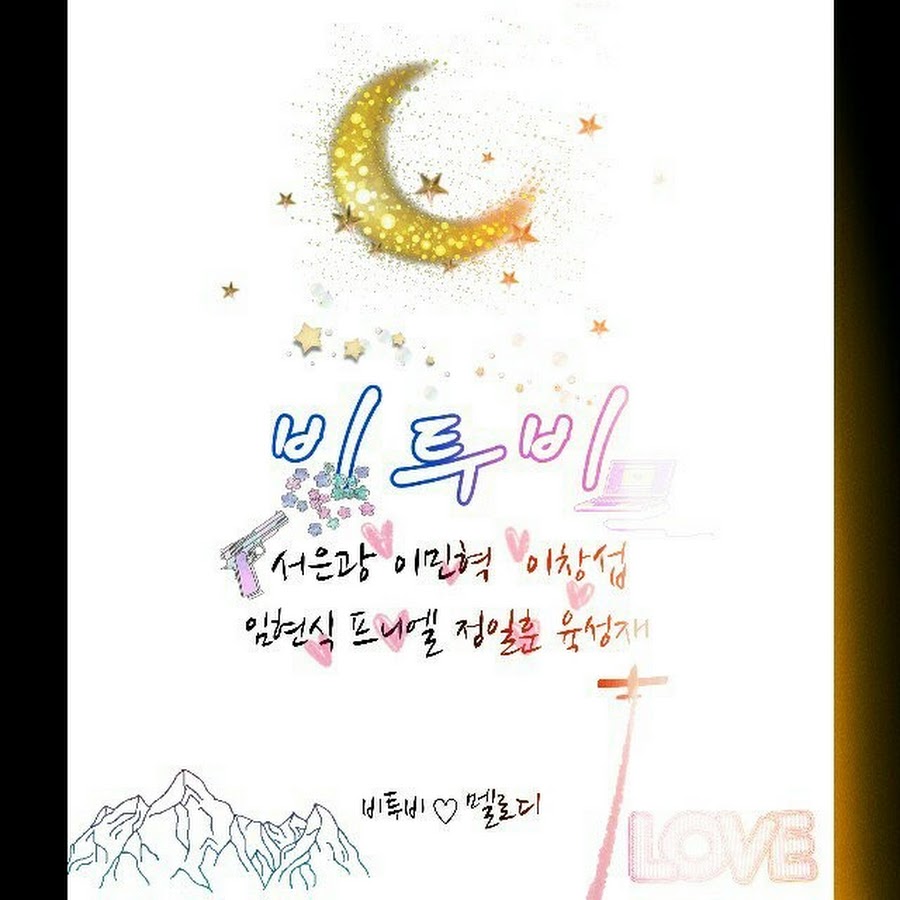 비투비
서은광 이민혁 이창섭
임현식 프니엘 정일훈 육성재
비투비♡멜로디
LOVE